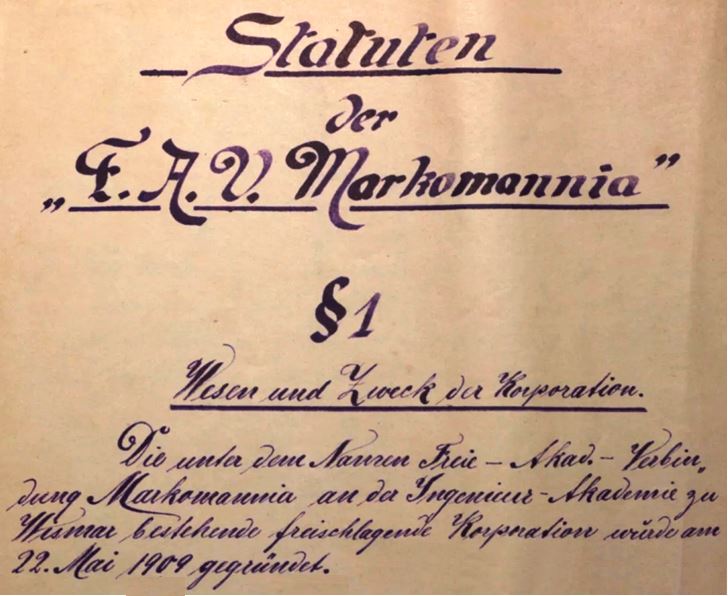 Statuten
der
„F. A. V. Markomannia”
§ 1
Wesen und Zweck der Korporation.
Die unter dem Namen Freie – Akad. – Verbin„
dung Markomannia an der Ingenieur-Akademie zu
Wismar bestehende freischlagende Korporation wurde am
22. Mai 1909 gegründet.